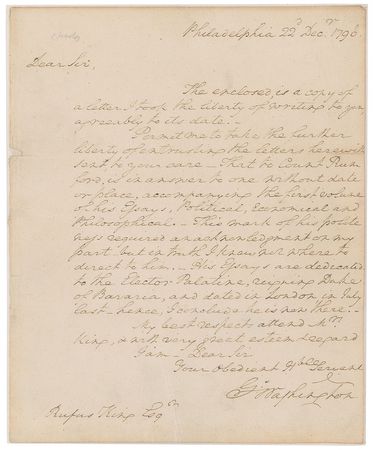 Philadelphia 22d Decr. 1796.
Dear Sir,
The enclosed, is a copy of
a letter I took the liberty of writing to you
agreeably to its date.—
Permit me to take the further
liberty of entrusting the letters herewith
sent, to your care.— That to Count Rum-
ford, is in answer to one without date
or place, accompanying the first volume
of his Essays, Political, Economical and
Philosophical.— This mark of his polite
ness required an acknowledgment on my
part, but in truth I knew not where to
direct to him.— His Essays are dedicated
to the Elector Palatine, reigning Duke
of Bavaria, and dated in London in July
last—hence, I conclude he is now there.—
My best respects attend Mrs.
King, & with very great esteem & regard
I am—Dear Sir
Your Obedient Hble Servant
Go: Washington
Rufus King Esqr.